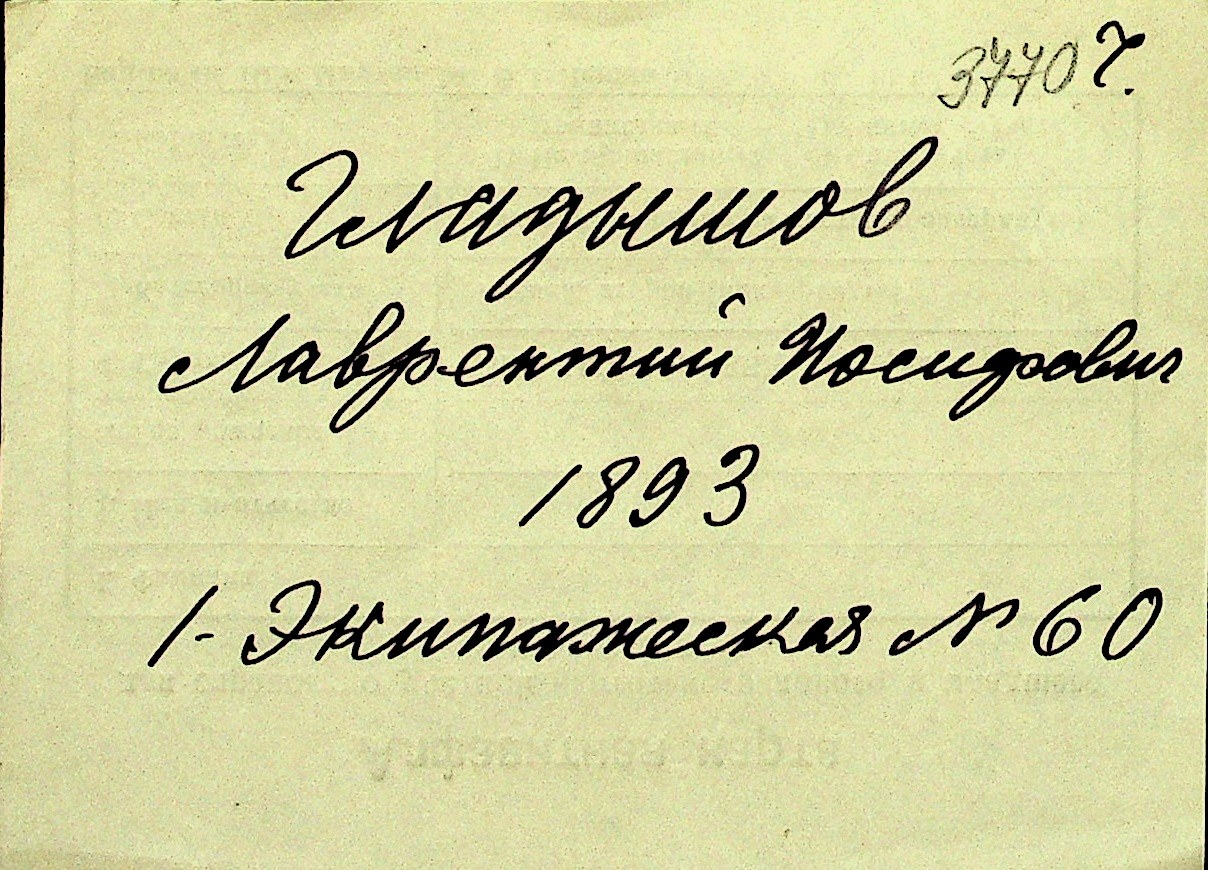 3770 г.
Гладышов
Лаврентий Иосифович
1893
1-Экипажеская № 60